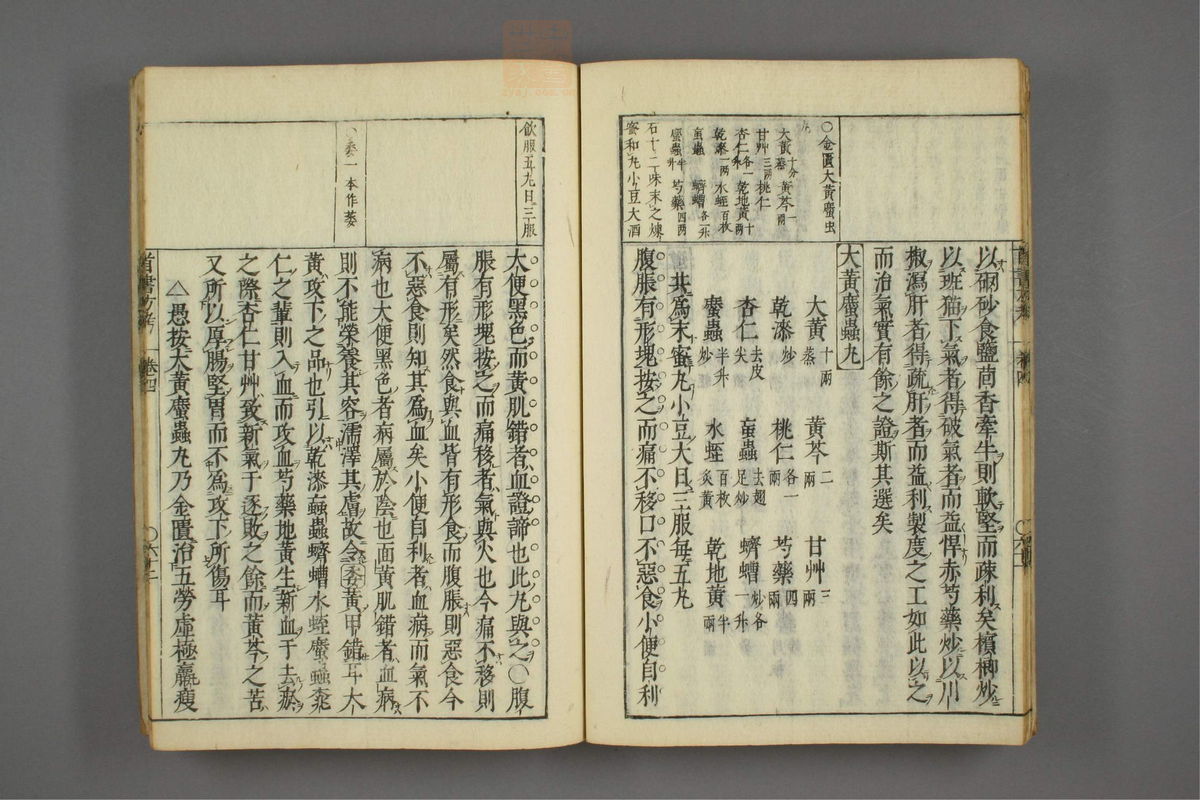 以硇砂食鹽茴香牽牛則軟堅而疎利矣檳榔炒
以班猫下氣者得破氣者而益悍赤芍藥炒以川
椒瀉肝者得疏肝者而益利製度之工如此以之
而治氣實有餘之證斯其選矣
大黃䗪蟲丸
大黃十兩蒸 黃芩二兩 甘艸三兩
乾漆炒 桃仁各一兩 芍藥四兩
杏仁去皮尖 䖟蟲去翅足炒 蠐螬炒各一升
䗪蟲半升炒 水蛭百枚炙黃 乾地黃半兩
共爲末蜜丸小豆大日三服每五丸
腹脹有形塊按之而痛不移口不惡食小便自利
〇金匱大黃䗪虫
丸
大黃十分蒸 黃芩一兩
甘艸三兩 桃仁
杏仁各一升 乾地黃十兩
乾漆一兩 水蛭百枚
䖟蟲 蠐螬各一升
䗪蟲半升 芍藥四兩
右十二味末之煉
蜜和丸小豆大酒
飲服五丸日三服
〇委一本作萎
大便黑色而黃肌錯者血證諦也此丸與之〇腹
脹有形塊按之而痛移者氣與火也今痛不移則
屬有形矣然食與血皆有形食而腹脹則惡食今
不惡食則知其爲血矣小便自利者血病而氣不
病也大便黑色者病屬於陰也面黃肌錯者血病
則不能榮養其容濡澤其膚故令委黃甲錯耳大
黃攻下之品也引以乾漆䖟蟲蠐螬水蛭䗪蟲桃
仁之輩則入血而攻血芍藥地黃生新血于去瘀
之際杏仁甘艸致新氣于逐敗之餘而黃芩之苦
又所以厚腸堅胃而不爲攻下所傷耳
△愚按大黃䗪蟲丸乃金匱治五勞虛極羸瘦
首書方考 卷四 〇六十二